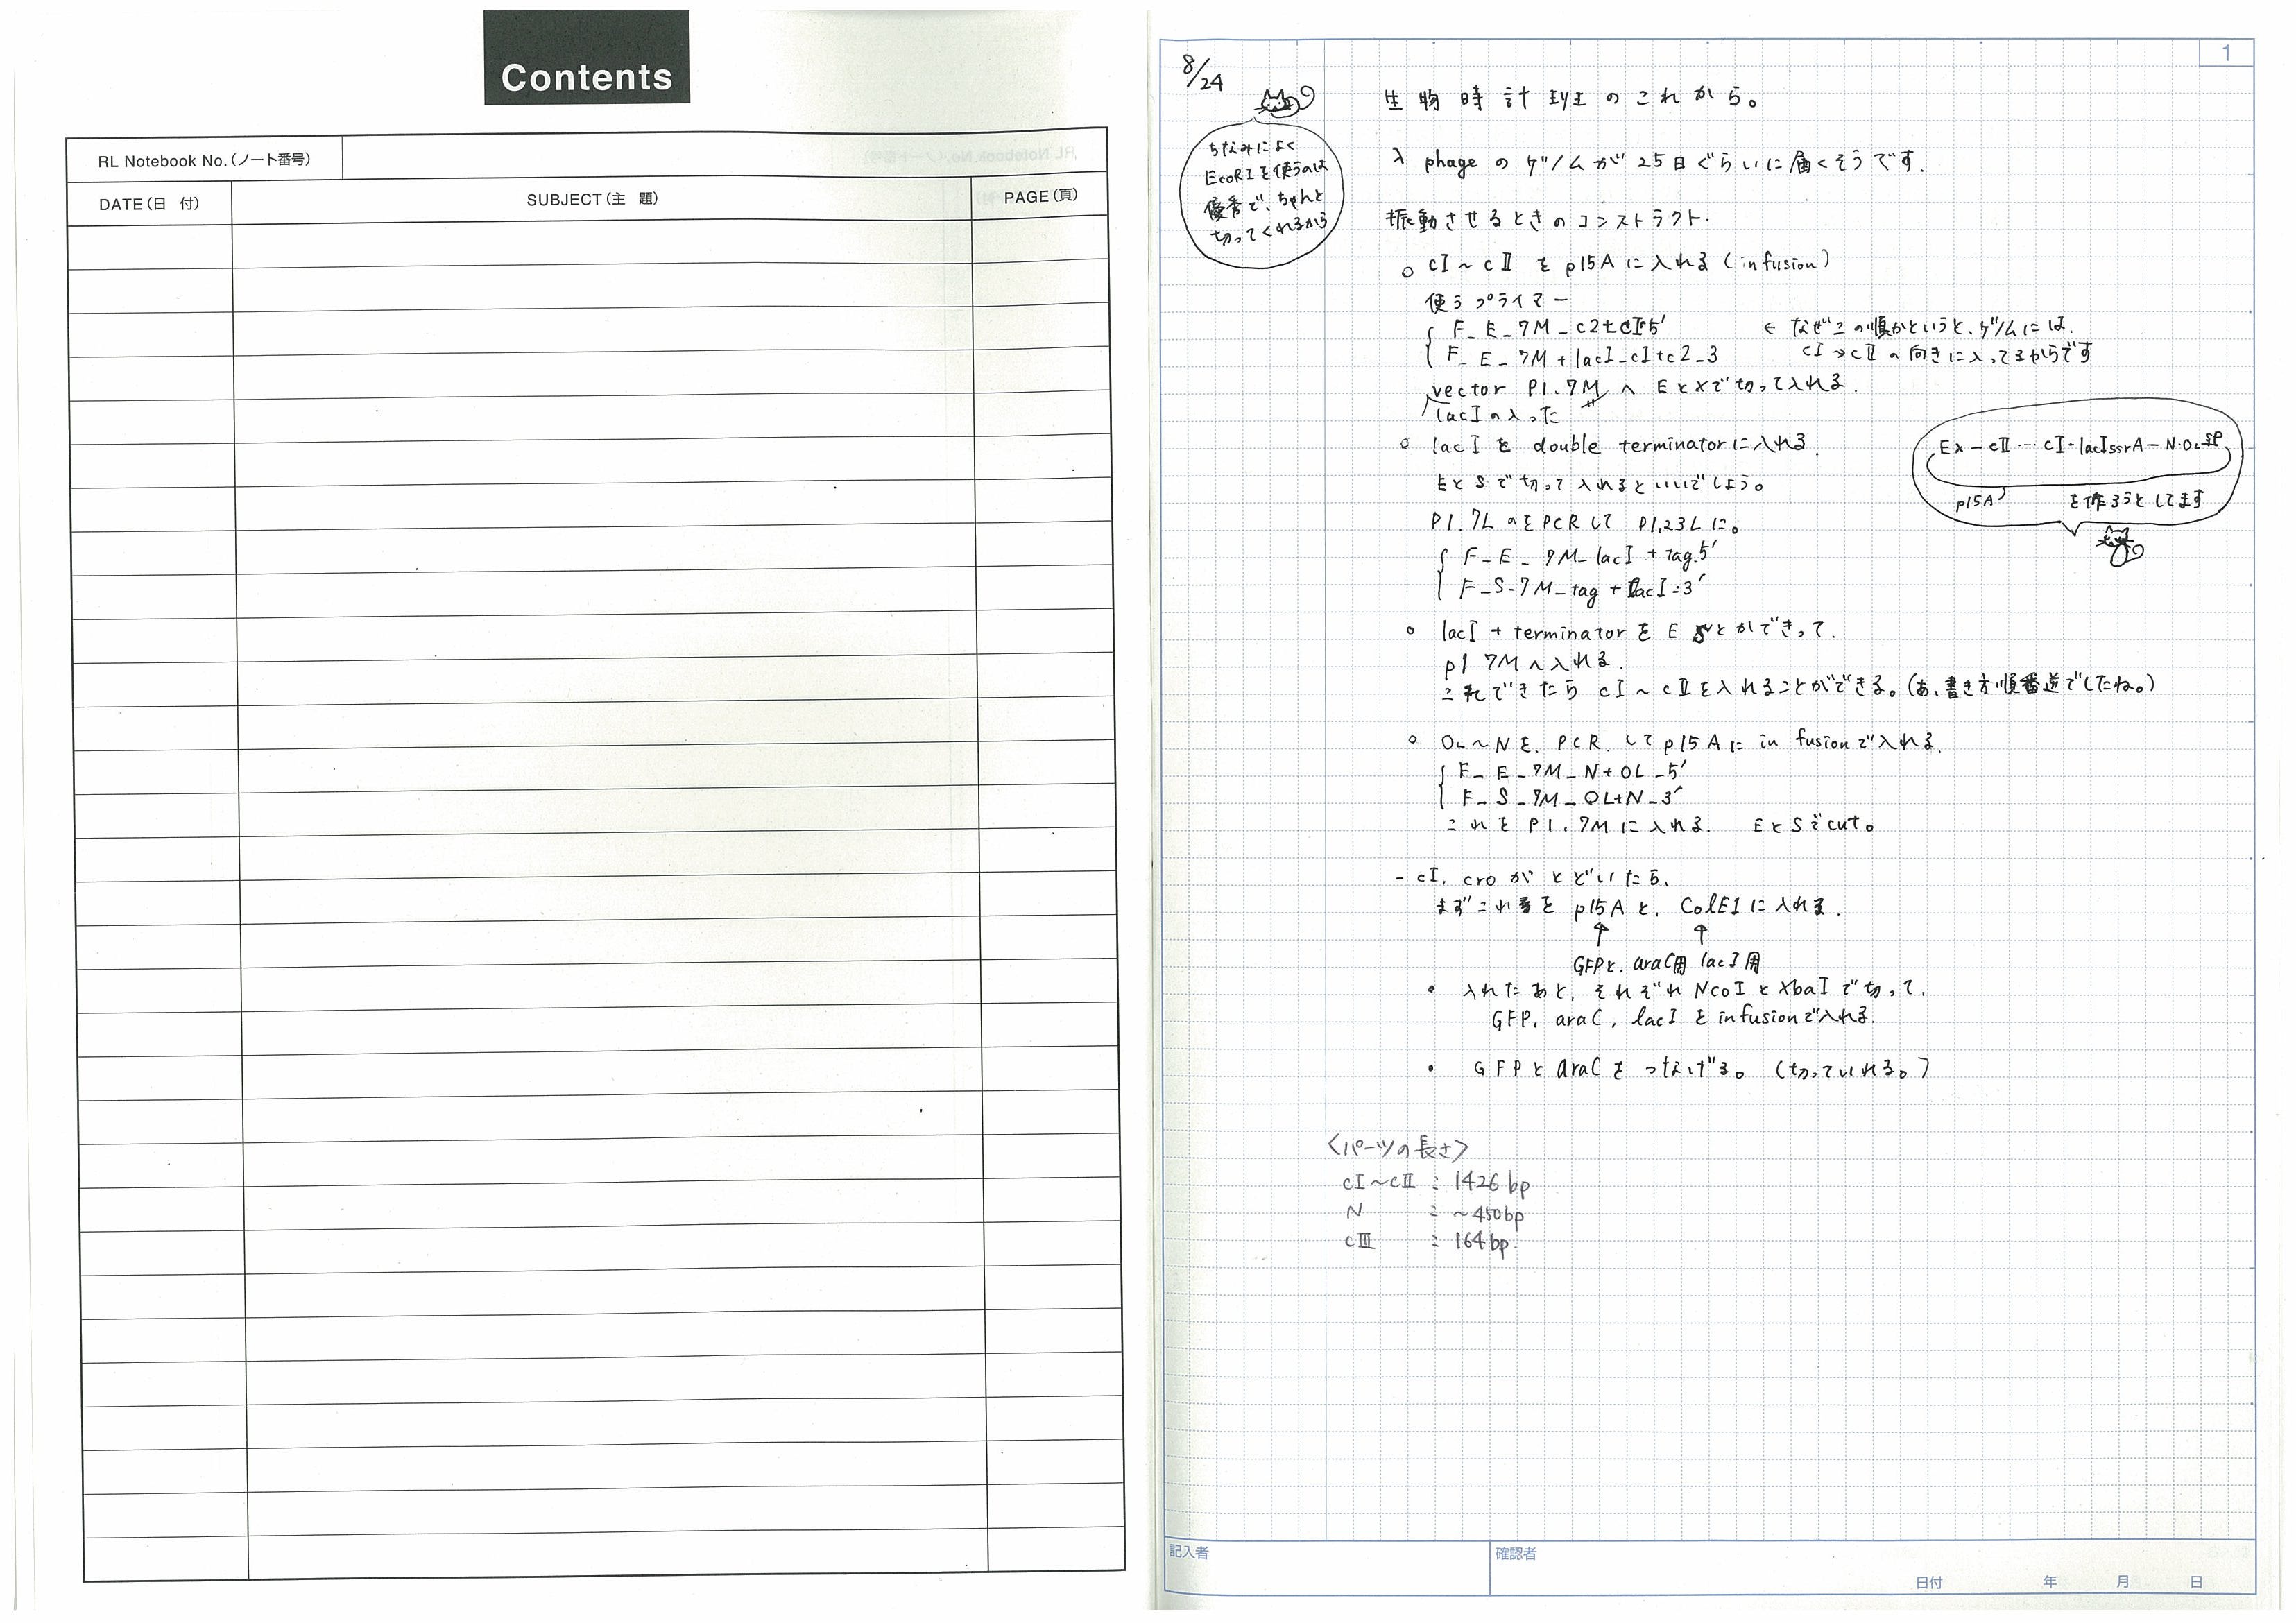 Contents
RL Notebook No.(ノート番号)
DATE(日 付)
SUBJECT(主 題)
PAGE(頁)
1
8/24
ちなみによく
EcoRIを使うのは
優秀で、ちゃんと
切ってくれるから
生物時計班のこれから。
λ phageのゲノムが25日ぐらいに届くそうです.
振動させるときのコンストラクト.
○ cI~cⅡをp15Aに入れる(infusion)
使うプライマー
F_E_7M_c2+cI-5'
← なぜこの順かというと、ゲノムには.
F_E_7M+lacI_cI+c2_3
cI→cⅡの向きに入ってるからです
vector P1.7MへEとXで切って入れる.
lacIの入った
○ lacIをdouble terminatorに入れる.
EとSで切って入れるといいでしょう。
P1.7LのをPCRしてP1,23Lに。
F_E_7M_lacI+tag.5'
F_S-7M_tag+lacI-3'
Ex-cⅡ…cI-lacIssrA-N・OL-SP
p15A
を作ろうとしてます
○ lacI+terminatorをE Sとかできって.
p1 7Mへ入れる.
これできたらcI~cⅡを入れることができる。(あ、書き方順番逆でしたね。)
○ OL~Nを.PCR.してp15Aにin fusionで入れる.
F_E_7M_N+OL_5'
F_S_7M_OL+N_3'
これをP1.7Mに入れる. EとSでcut。
- cI, croがとどいたら、
まずこれをp15Aと、ColE1に入れる.
↑ ↑
GFPと.araC用 lacI用
・ 入れたあと、それぞれNcoIとXbaIで切って、
GFP, araC, lacIをinfusionで入れる.
・ GFPとaraCをつなげる。(切っていれる。)
<パーツの長さ>
cI~cⅡ : 1426bp
N : ~450bp
cⅢ : 164bp.
記入者
確認者
日付 年 月 日